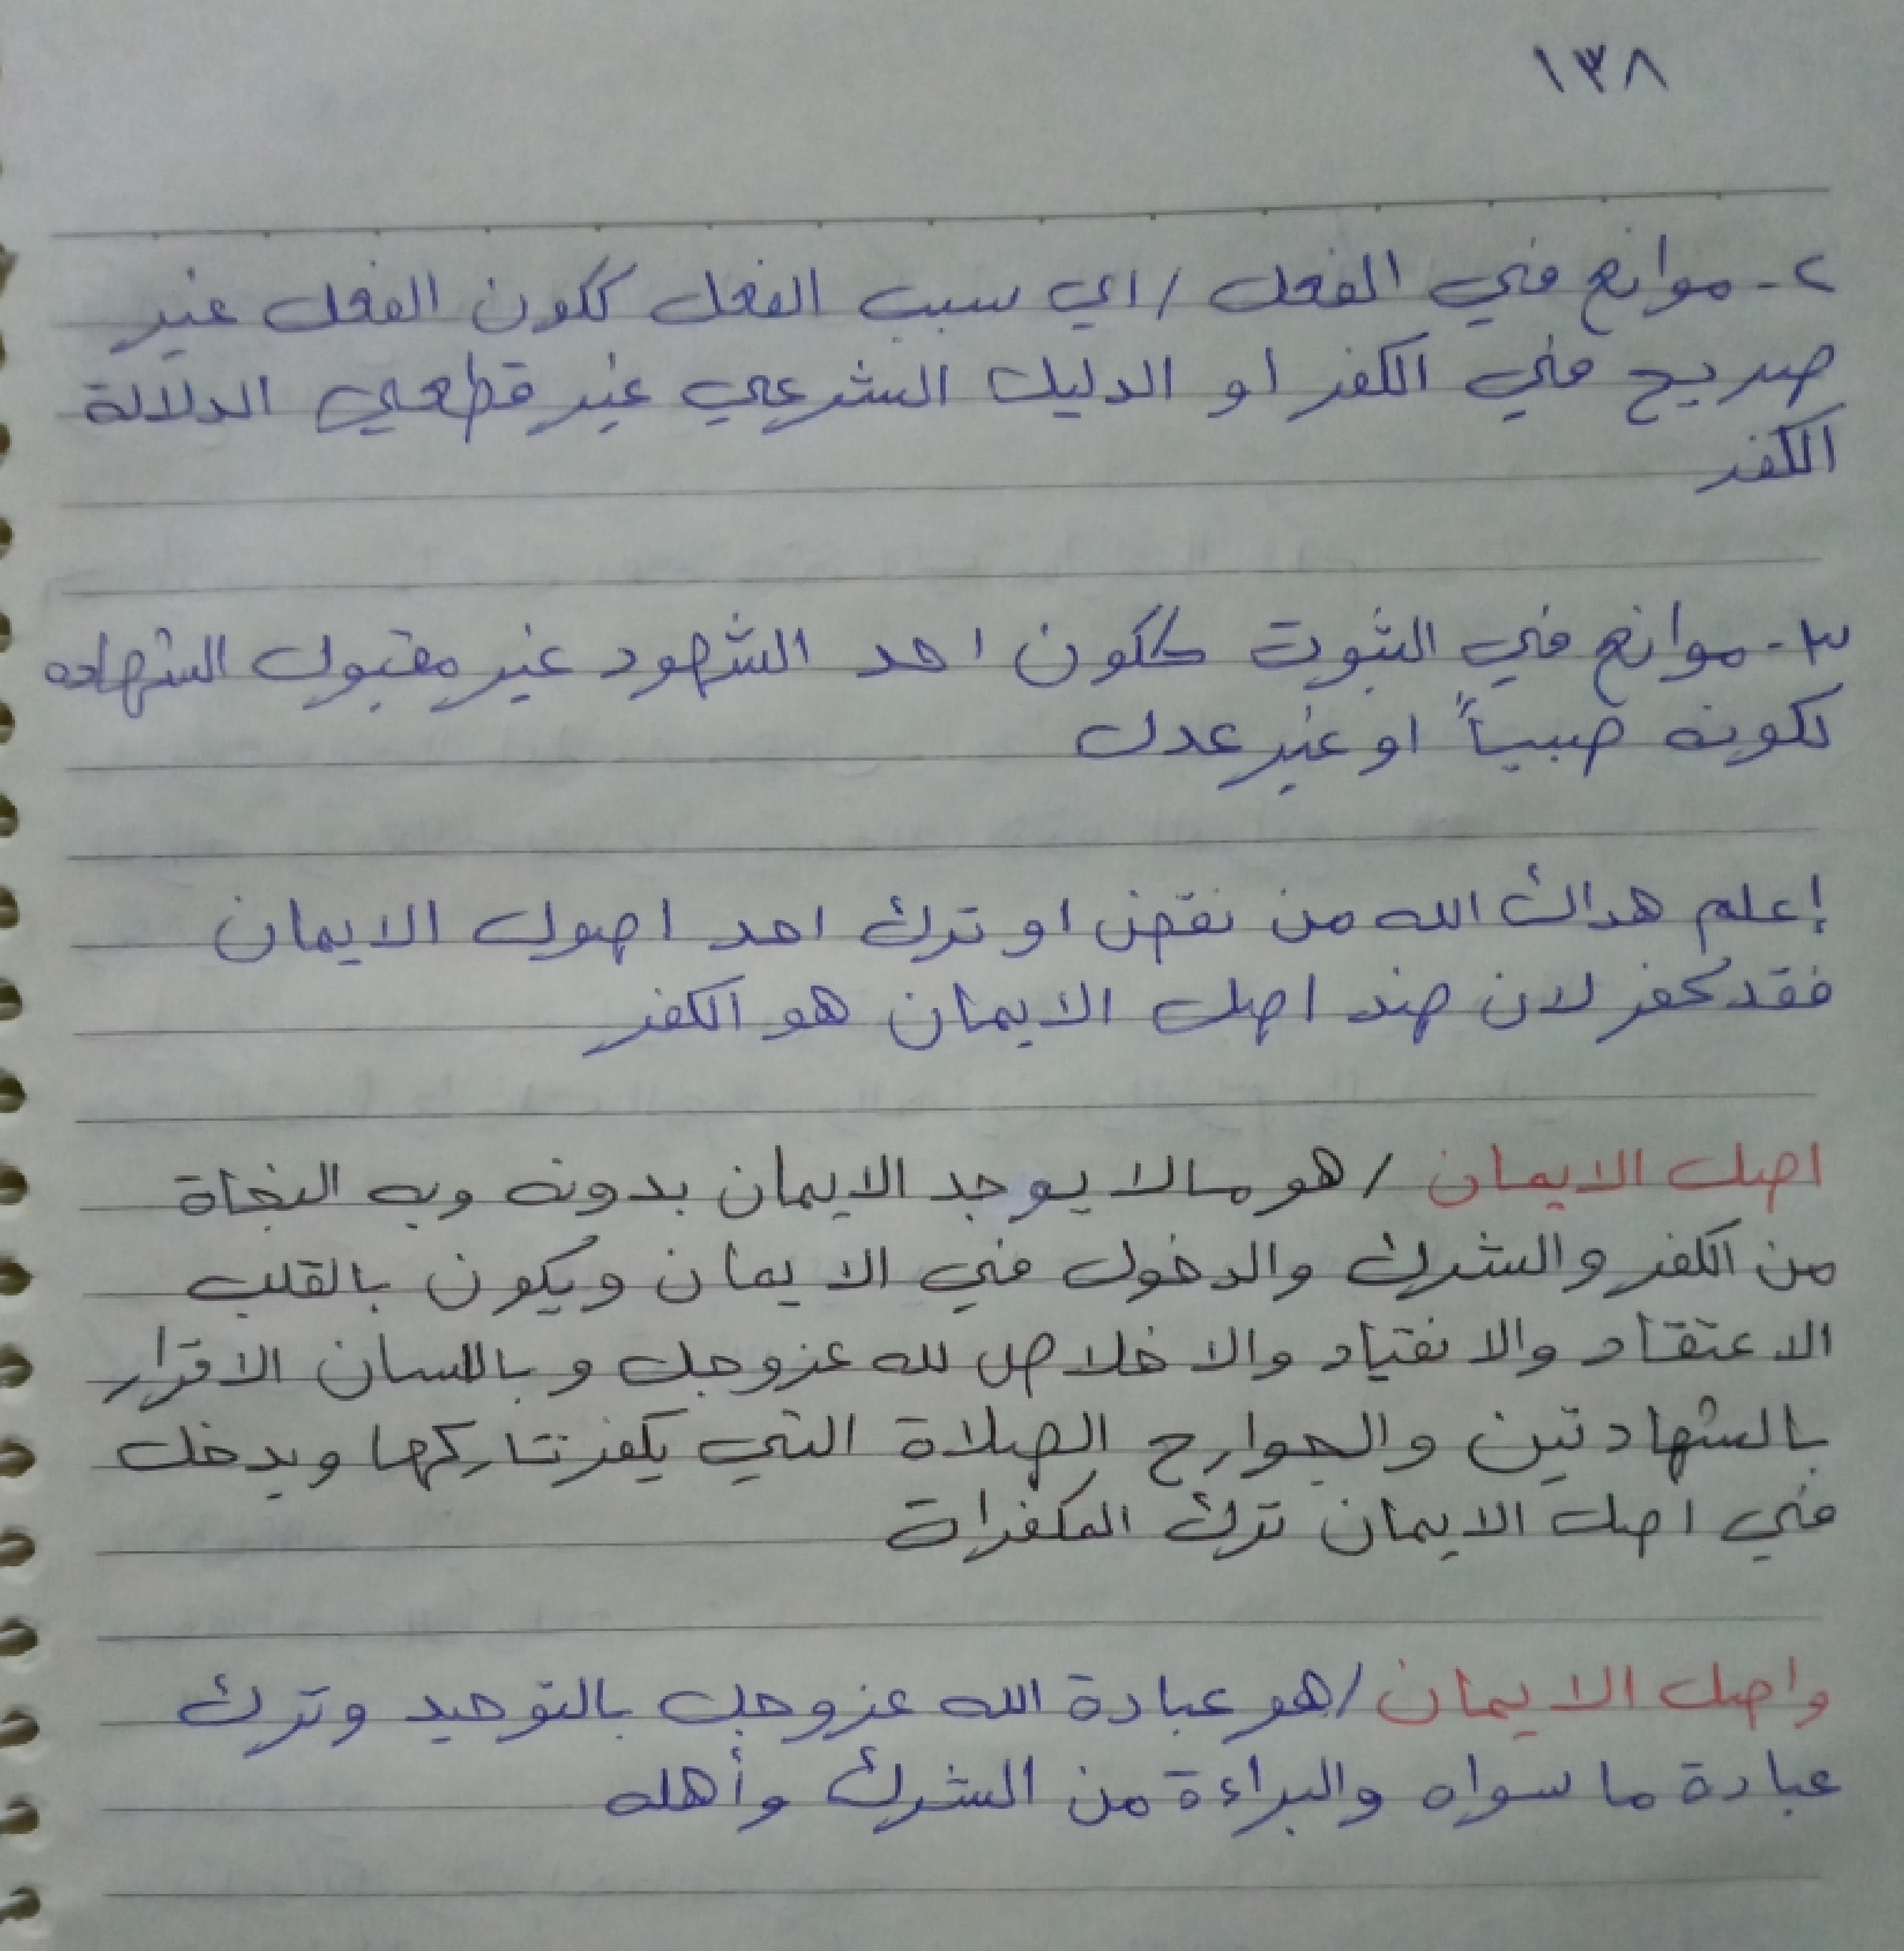 ١٣٨
٢- موانع في الفعل / اي سبب الفعل ككون الفعل غير
صريح في الكفر او الدليل الشرعي غير قطعي الدلالة
الكفر
٣- موانع في الثبوت ككون احد الشهود غير مقبول الشهاده
لكونه صبياً او غير عدل
إعلم هداك الله من نقض او ترك احد اصول الايمان
فقد كفر لان ضد اصل الايمان هو الكفر
اصل الايمان / هو مالا يوجد الايمان بدونه وبه النجاة
من الكفر والشرك والدخول في الايمان ويكون بالقلب
الاعتقاد والانقياد والاخلاص لله عزوجل وباللسان الاقرار
بالشهادتين والجوارح الصلاة التي يكفر تاركها ويدخل
في اصل الايمان ترك المكفرات
واصل الايمان / هو عبادة الله عزوجل بالتوحيد وترك
عبادة ما سواه والبراءة من الشرك وأهله